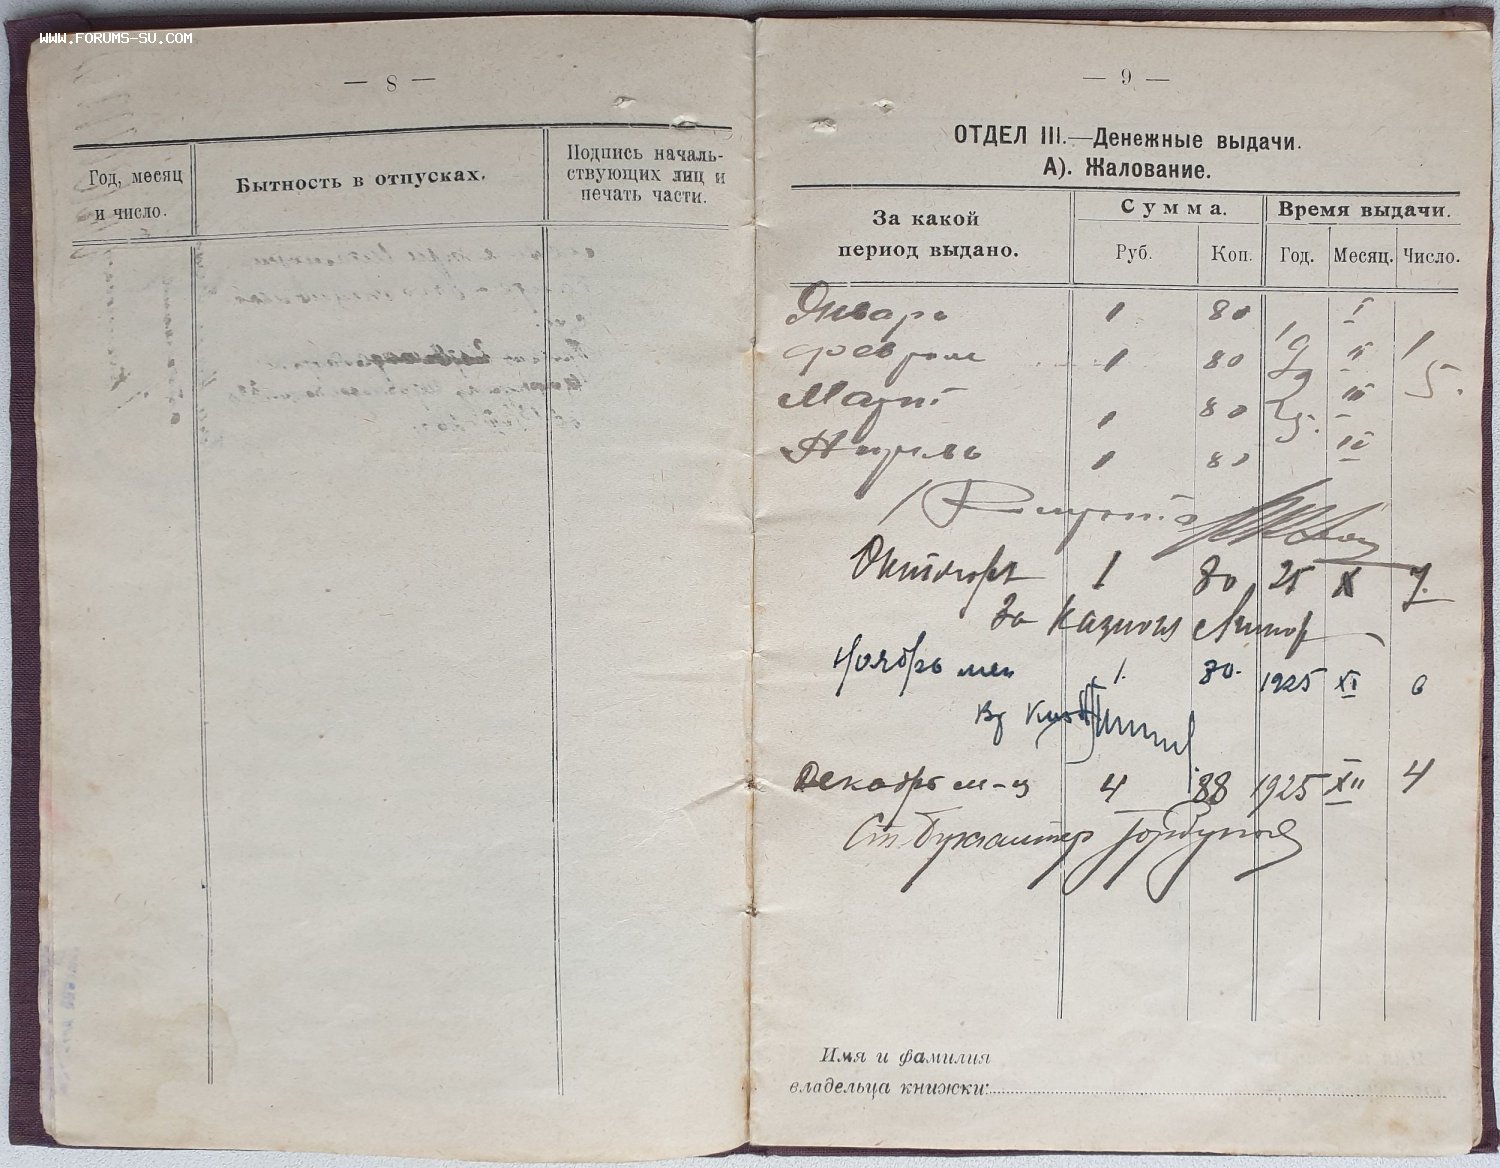 WWW.FORUMS-SU.COM
— 8 —
Год, месяц и число.
Бытность в отпусках.
Подпись началь-
ствующих лиц и
печать части.
— 9 —
ОТДЕЛ III.—Денежные выдачи.
А). Жалование.
За какой
период выдано.
Сумма.
Время выдачи.
Руб. Коп. Год. Месяц. Число.
Январь 1 80 I
Февраль 1 80 II 1
Март 1 80 III 5.
Апрель 1 80 IV
Октябрь 1 80 25 X 7.
За
Ноябрь м-ц 1. 80. 1925 XI 6
Декабрь м-ц 4 88 1925 XII 4
Ст бухгалтер Горбунов
Имя и фамилия
владельца книжки: